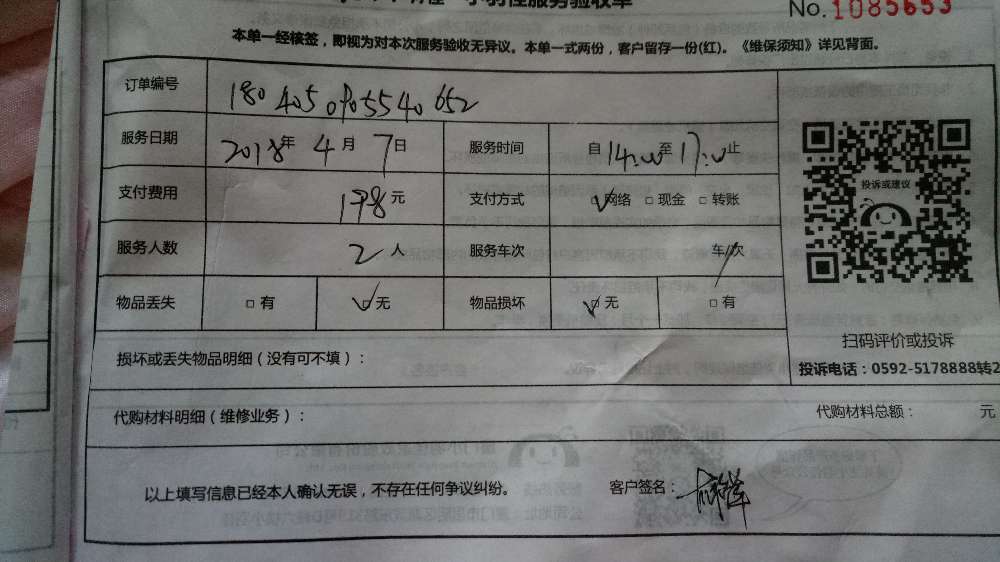 服务验收单
No.1085653
本单一经核签，即视为对本次服务验收无异议。本单一式两份，客户留存一份(红)。《维保须知》详见背面。
订单编号
服务日期 2018年 4月 7日 服务时间 自14:00至17:00止
支付费用 198元 支付方式 ☑网络 □现金 □转账
服务人数 2人 服务车次 车/次
物品丢失 □有 ☑无 物品损坏 ☑无 □有
损坏或丢失物品明细（没有可不填）：
投诉或建议
扫码评价或投诉
投诉电话：0592-5178888转2
代购材料明细（维修业务）： 代购材料总额： 元
以上填写信息已经本人确认无误，不存在任何争议纠纷。 客户签名：